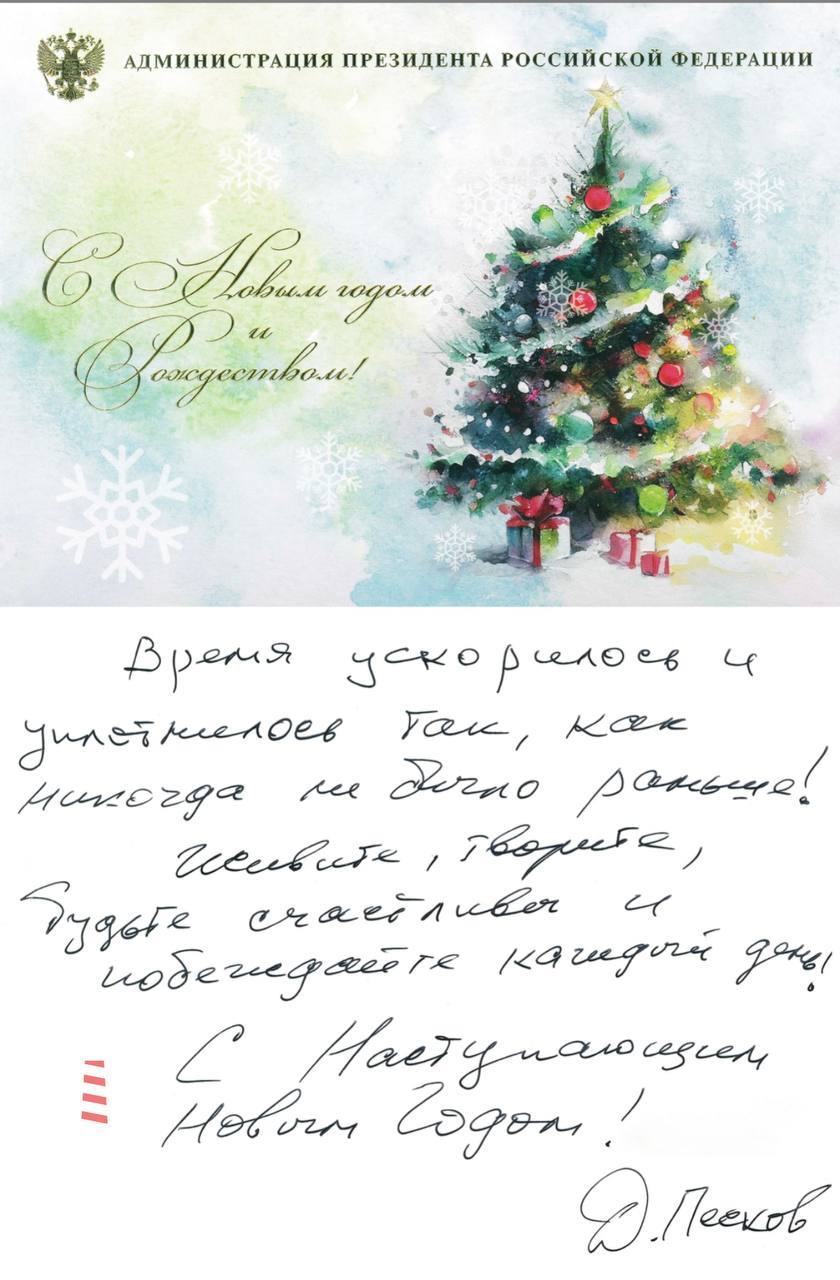 АДМИНИСТРАЦИЯ ПРЕЗИДЕНТА РОССИЙСКОЙ ФЕДЕРАЦИИ
С Новым годом
и
Рождеством!
Время ускорилось и
уплотнилось так, как
никогда не было раньше!
Живите, творите,
будьте счастливы и
побеждайте каждый день!
С Наступающим
Новым Годом!
Д. Песков